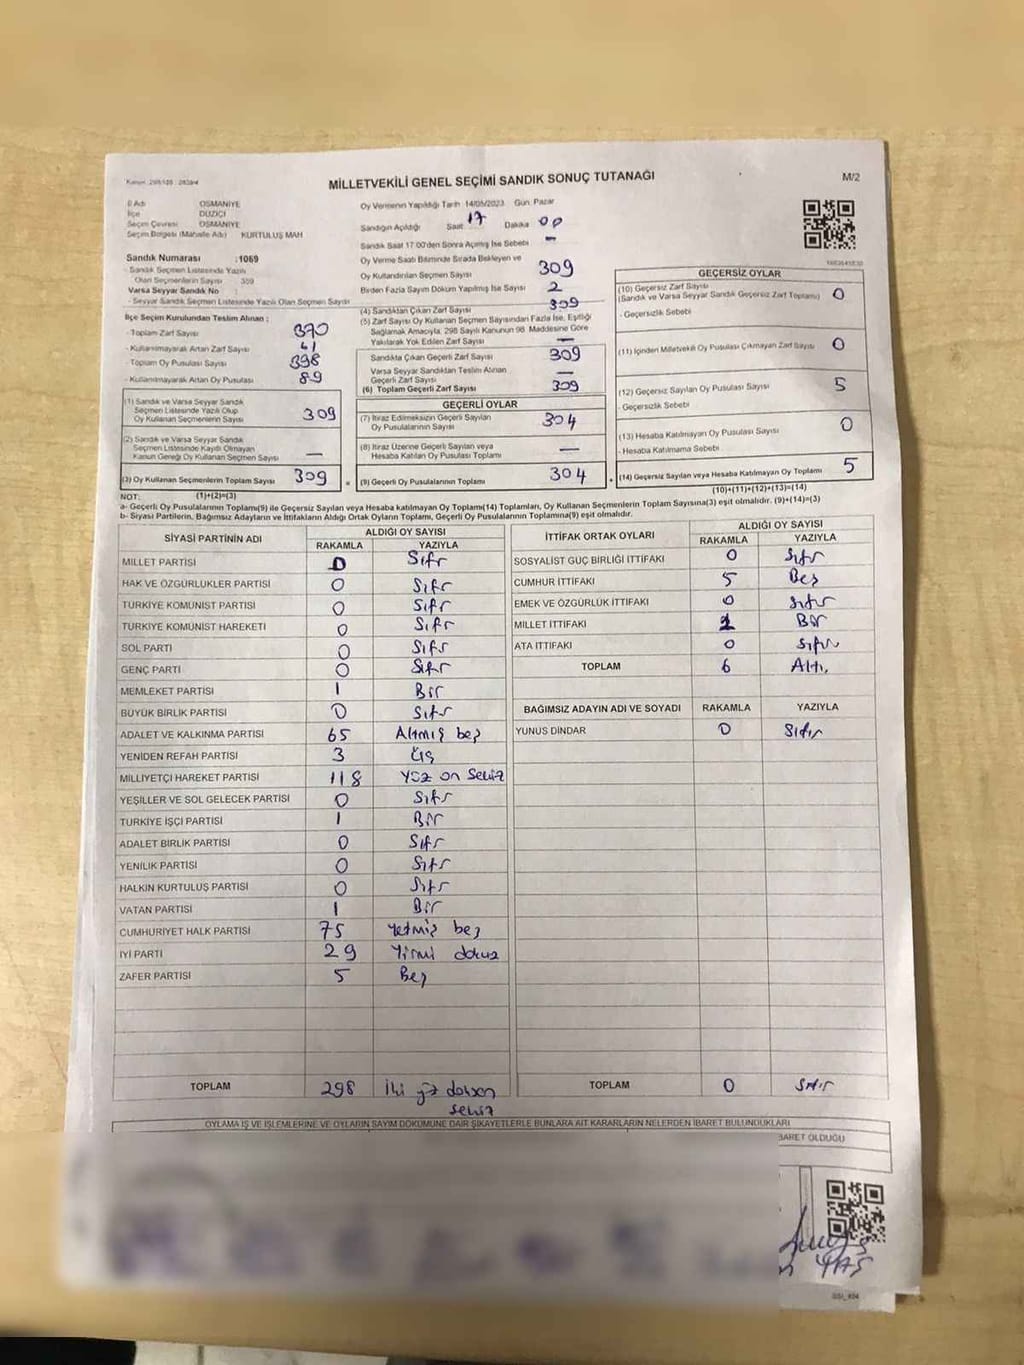 MİLLETVEKİLİ GENEL SEÇİMİ SANDIK SONUÇ TUTANAĞI
M/2
İl Adı OSMANİYE
İlçe DÜZİÇİ
Seçim Çevresi OSMANİYE
Seçim Bölgesi (Mahalle Adı) KURTULUŞ MAH
Sandık Numarası :1069
- Sandık Seçmen Listesinde Yazılı
Olan Seçmenlerin Sayısı 359
Varsa Seyyar Sandık No
- Seyyar Sandık Seçmen Listesinde Yazılı Olan Seçmen Sayısı
Oy Vermenin Yapıldığı Tarih 14/05/2023 Gün Pazar
Sandığın Açıldığı Saat 17 Dakika 00
Sandık Saat 17.00'den Sonra Açılmış İse Sebebi —
Oy Verme Saati Bitiminde Sırada Bekleyen ve
Oy Kullandırılan Seçmen Sayısı 309
Birden Fazla Sayım Döküm Yapılmış İse Sayısı 2
İlçe Seçim Kurulundan Teslim Alınan :
- Toplam Zarf Sayısı 370
- Kullanılmayarak Artan Zarf Sayısı 61
Toplam Oy Pusulası Sayısı 398
- Kullanılmayarak Artan Oy Pusulası 89
(1) Sandık ve Varsa Seyyar Sandık
Seçmen Listesinde Yazılı Olup
Oy Kullanan Seçmenlerin Sayısı 309
(2) Sandık ve Varsa Seyyar Sandık
Seçmen Listesinde Kaydı Olmayan
Kanun Gereği Oy Kullanan Seçmen Sayısı —
(3) Oy Kullanan Seçmenlerin Toplam Sayısı 309
(4) Sandıktan Çıkan Zarf Sayısı 309
(5) Zarf Sayısı Oy Kullanan Seçmen Sayısından Fazla İse, Eşitliği
Sağlamak Amacıyla, 298 Sayılı Kanunun 98. Maddesine Göre
Yakılarak Yok Edilen Zarf Sayısı —
Sandıkta Çıkan Geçerli Zarf Sayısı 309
Varsa Seyyar Sandıktan Teslim Alınan
Geçerli Zarf Sayısı —
(6) Toplam Geçerli Zarf Sayısı 309
GEÇERLİ OYLAR
(7) İtiraz Edilmeksizin Geçerli Sayılan
Oy Pusulalarının Sayısı 304
(8) İtiraz Üzerine Geçerli Sayılan veya
Hesaba Katılan Oy Pusulası Toplamı —
= (9) Geçerli Oy Pusulalarının Toplamı 304
GEÇERSİZ OYLAR
(10) Geçersiz Zarf Sayısı 0
(Sandık ve Varsa Seyyar Sandık Geçersiz Zarf Toplamı)
- Geçersizlik Sebebi
(11) İçinden Milletvekili Oy Pusulası Çıkmayan Zarf Sayısı 0
(12) Geçersiz Sayılan Oy Pusulası Sayısı 5
- Geçersizlik Sebebi
(13) Hesaba Katılmayan Oy Pusulası Sayısı 0
- Hesaba Katılmama Sebebi
+ (14) Geçersiz Sayılan veya Hesaba Katılmayan Oy Toplamı 5
NOT: (1)+(2)=(3)
(10)+(11)+(12)+(13)=(14)
a- Geçerli Oy Pusulalarının Toplamı(9) ile Geçersiz Sayılan veya Hesaba katılmayan Oy Toplam(14) Toplamları, Oy Kullanan Seçmenlerin Toplam Sayısına(3) eşit olmalıdır. (9)+(14)=(3)
b- Siyasi Partilerin, Bağımsız Adayların ve İttifakların Aldığı Ortak Oyların Toplamı, Geçerli Oy Pusulalarının Toplamına(9) eşit olmalıdır.
SİYASİ PARTİNİN ADI ALDIĞI OY SAYISI
RAKAMLA YAZIYLA
MİLLET PARTİSİ 0 Sıfır
HAK VE ÖZGÜRLÜKLER PARTİSİ 0 Sıfır
TÜRKİYE KOMÜNİST PARTİSİ 0 Sıfır
TÜRKİYE KOMÜNİST HAREKETİ 0 Sıfır
SOL PARTİ 0 Sıfır
GENÇ PARTİ 0 Sıfır
MEMLEKET PARTİSİ 1 Bir
BÜYÜK BİRLİK PARTİSİ 0 Sıfır
ADALET VE KALKINMA PARTİSİ 65 Altmış beş
YENİDEN REFAH PARTİSİ 3 Üç
MİLLİYETÇİ HAREKET PARTİSİ 118 Yüz on Sekiz
YEŞİLLER VE SOL GELECEK PARTİSİ 0 Sıfır
TÜRKİYE İŞÇİ PARTİSİ 1 Bir
ADALET BİRLİK PARTİSİ 0 Sıfır
YENİLİK PARTİSİ 0 Sıfır
HALKIN KURTULUŞ PARTİSİ 0 Sıfır
VATAN PARTİSİ 1 Bir
CUMHURİYET HALK PARTİSİ 75 Yetmiş beş
İYİ PARTİ 29 Yirmi dokuz
ZAFER PARTİSİ 5 Beş
TOPLAM 298 İki yüz doksan
sekiz
İTTİFAK ORTAK OYLARI ALDIĞI OY SAYISI
RAKAMLA YAZIYLA
SOSYALİST GÜÇ BİRLİĞİ İTTİFAKI 0 Sıfır
CUMHUR İTTİFAKI 5 Beş
EMEK VE ÖZGÜRLÜK İTTİFAKI 0 Sıfır
MİLLET İTTİFAKI 1 Bir
ATA İTTİFAKI 0 Sıfır
TOPLAM 6 Altı
BAĞIMSIZ ADAYIN ADI VE SOYADI RAKAMLA YAZIYLA
YUNUS DİNDAR 0 Sıfır
TOPLAM 0 Sıfır
OYLAMA İŞ VE İŞLEMLERİNE VE OYLARIN SAYIM DÖKÜMÜNE DAİR ŞİKAYETLERLE BUNLARA AİT KARARLARIN NELERDEN İBARET BULUNDUKLARI
BARET OLDUĞU